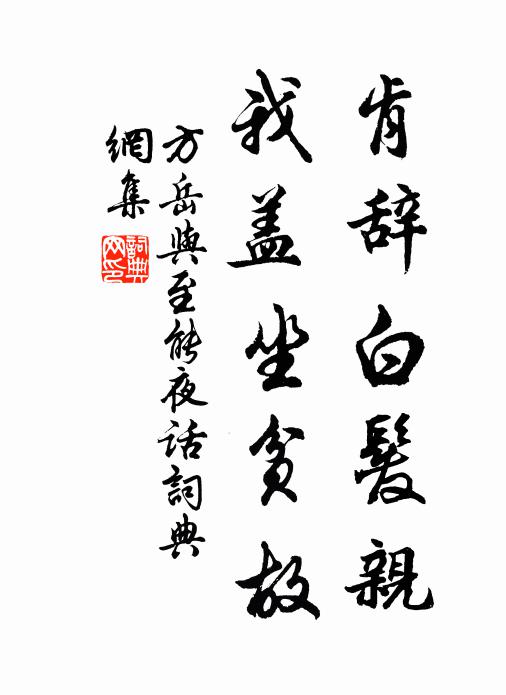 肯辞白髮親
我盖坐贫故
方岳與至能夜话詞典
網集
詞典
网印